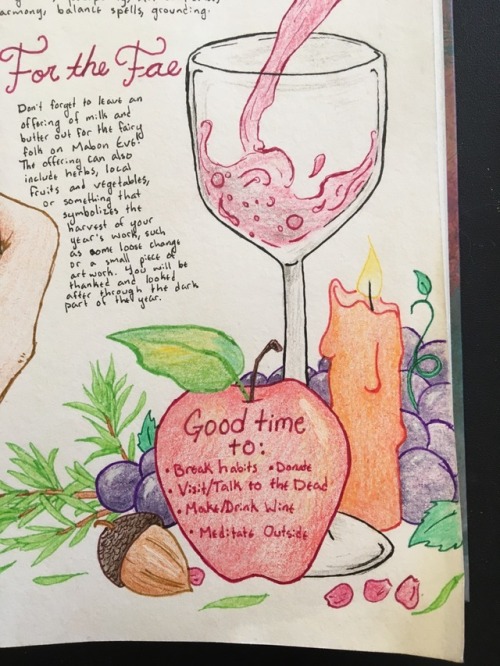 armony, balance spells, grounding.
For the Fae
Don't forget to leave an
offering of milk and
butter out for the fairy
folk on Mabon Eve!
The offering can also
include herbs, local
fruits and vegetables,
or something that
symbolizes the
harvest of your
year's work, such
as some loose change
or a small piece of
artwork. You will be
thanked and looked
after through the dark
part of the year.
Good time
to:
• Break habits • Donate
• Visit/Talk to the Dead
• Make/Drink Wine
• Meditate Outside